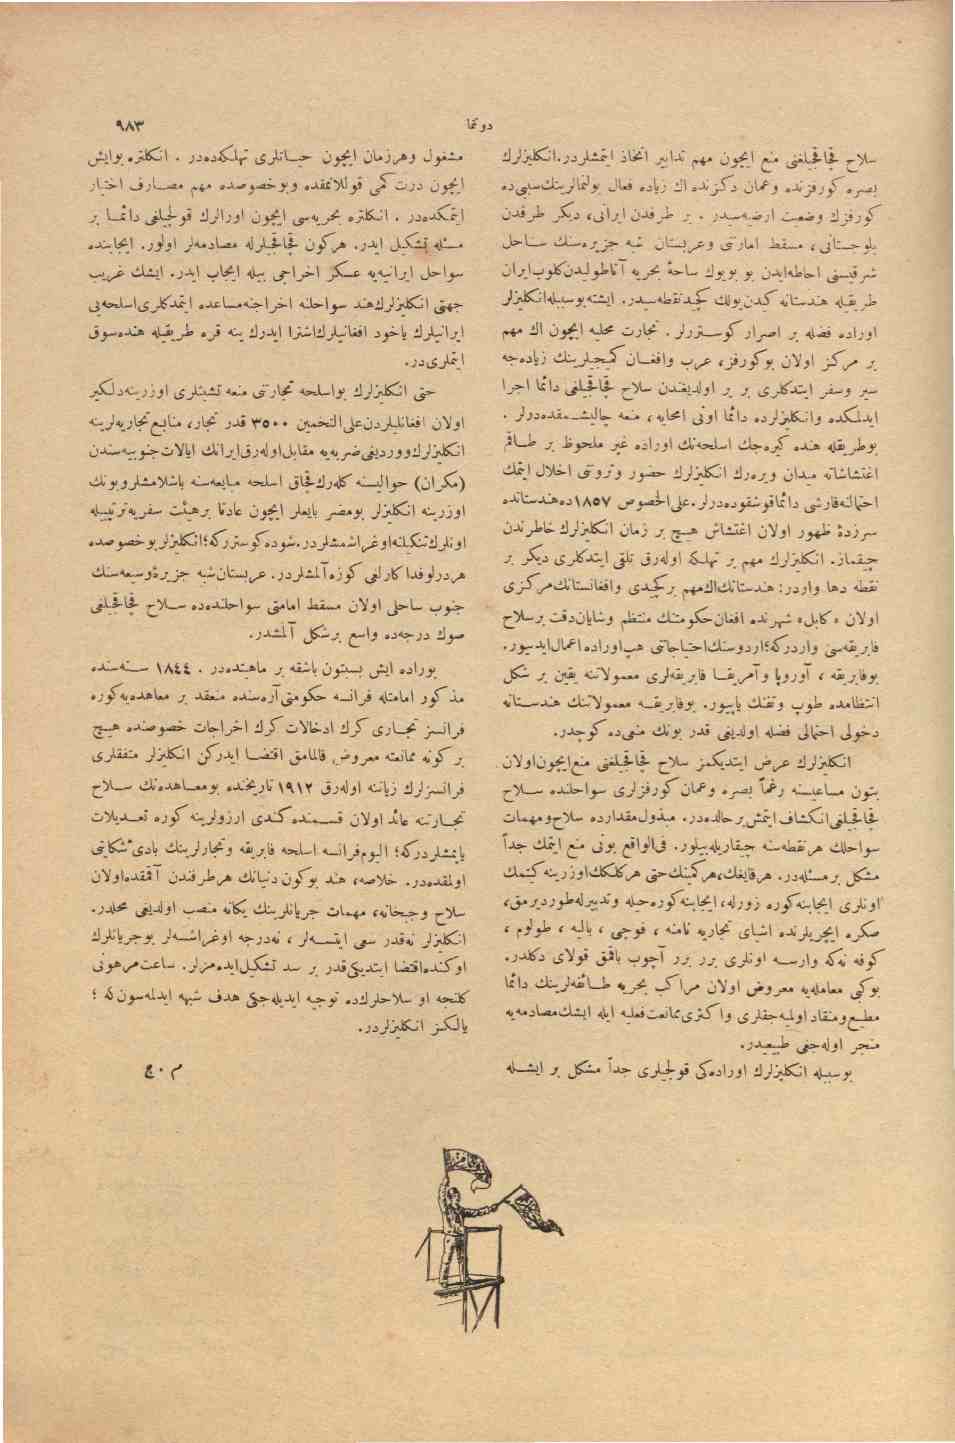 دوننما
٩٨٣
سلاح قاچاقچيلغنی منع ايچون مهم تدابير اتخاذ ايتمشلردر. انكليزلرك
بصره كورفزنده وعمان دكزنده اك زياده فعال بولنمالرينك سببی ده
كورفزك وضعيت ارضيه‌سيدر . بر طرفدن ايرانی، ديكر طرفدن
بلوجستانی، مسقط امارتنی وعربستان شبه جزيره‌سنك ساحل
شرقيسنی احاطه‌ايدن بو بويوك ساحهٔ بحريه آناطوليدن كلوب ايران
طريقيله هندستانه كيدن يولك كچيد نقطه‌سيدر. ايشته بوسببله انكليزلر
اوراده فضله بر اصرار كوستررلر . تجارت محليه ايچون اك مهم
بر مركز اولان بوكورفز، عرب وافغان كميجيلرينك زياده‌جه
سير وسفر ايتدكلری بر ير اولديغندن سلاح قاچاقچيلغی دائما اجرا
ايدلمكده وانكليزلرده دائما اونی امحايه، منعه چاليشمقده‌درلر .
بوطريقله هنده كيره‌جك اسلحه‌نك اوراده غير ملحوظ بر طاقم
اغتشاشاته ميدان ويره‌رك انكليزلرك حضور وثروتنی اخلال ايتمك
احتمالنه قارشی دائما قوشقوده‌درلر. علی الخصوص ١٨٥٧ ده هندستانده
سرزدهٔ ظهور اولان اغتشاش هيچ بر زمان انكليزلرك خاطرندن
چيقماز. انكليزلرك مهم بر تهلكه اوله‌رق تلقی ايتدكلری ديكر بر
نقطه دها واردر: هندستانك اك مهم بر كچيدی وافغانستانك مركزی
اولان « كابل » شهرنده افغان حكومتنك منتظم وشايان دقت برسلاح
فابريقه‌سی واردركه؛ اردوسنك احتياجاتنی هپ اوراده اعمال ايديور.
بوفابريقه ، آوروپا و آمريقا فابريقه‌لری معمولاتنه يقين بر شكل
انتظامده طوپ وتفنك ياپيور. بوفابريقه معمولاتنك هندستانه
دخولی احتمالی فضله اولديغی قدر بونك منعی ده كوچدر.
انكليزلرك عرض ايتديكمز سلاح قاچاقچيلغنی منع ايچون اولان
بتون مساعيسنه رغماً بصره وعمان كورفزلری سواحلنده سلاح
قاچاقچيلغی انكشاف ايتمش بر حالده‌در. مبذول مقدارده سلاح ومهمات
سواحلك هر نقطه‌سنه چيقاريله‌بيلور. فی‌الواقع بونی منع ايتمك جداً
مشكل بر مسئله‌در. هر قايغك، هر كمينك حتی هر كلكك اوزرينه كيتمك
اونلری ايجابنه كوره زورله، ايجابنه كوره حيله وتدبيرله طورديرمق،
صكره ايچريلرنده اشيای تجاريه نامنه ، فوچی ، باليه ، طولوم ،
كوفه نه‌كه وارسه اونلری برر برر آچوب باقمق قولای دكلدر.
بوكبی معامله‌يه معروض اولان مراكب بحريه طائفه‌لرينك دائما
مطيع ومنقاد اولميه‌جقلری واكثری ممانعت فعليه ايله ايشك مصادمه‌يه
منجر اوله‌جغی طبيعيدر.
بوسببله انكليزلرك اوراده‌كی قولجيلری جداً مشكل بر ايشله
مشغول وهر زمان ايچون حياتلری تهلكه‌ده‌در . انكلتره بوايش
ايچون درت كمی قوللانمقده وبوخصوصده مهم مصارف اختيار
ايتمكده‌در . انكلتره بحريه‌سی ايچون اورالرك قولجيلغی دائما بر
مسئله تشكيل ايدر. هركون قاچاقچيلرله مصادمه‌لر اولور. ايجابنده
سواحل ايرانيه‌يه عسكر اخراجی بيله ايجاب ايدر. ايشك غريب
جهتی انكليزلرك هند سواحلنه اخراجنه مساعده ايتمدكلری اسلحه‌يی
ايرانيلرك ياخود افغانيلرك اشترا ايدرك ينه قره طريقيله هنده سوق
ايتملری‌در.
حتی انكليزلرك بو اسلحه تجارتنی منعه تشبثلری اوزرينه دلكير
اولان افغانليلردن علی التخمين ٣٥٠٠ قدر تجار، منابع تجاريه‌لرينه
انكليزلرك ووردیغی ضربه‌يه مقابل اوله‌رق ايرانك ايالات جنوبيه‌سندن
(مكران) حواليسنه كله‌رك قاچاق اسلحه مبايعه‌سنه باشلامشلر وبونك
اوزرينه انكليزلر بومضر بايعلر ايچون عادتا بر هيئت سفريه ترتيبيله
اونلرك تنكيلنه اوغراشمشلردر. شوده كوستررکه؛ انكليزلر بوخصوصده
هر درلو فداكارلغی كوزه آلمشلردر. عربستان شبه جزيرهٔ وسيعه‌سنك
جنوب ساحلی اولان مسقط امامتی سواحلنده‌ده سلاح قاچاقچيلغی
صوك درجه‌ده واسع بر شكل آلمشدر.
بوراده ايش بسبتون باشقه بر ماهيتده‌در . ١٨٤٤ سنه‌سنده
مذكور امامتله فرانسه حكومتی آره‌سنده منعقد بر معاهده‌يه كوره
فرانسز تجاری كرك ادخالات كرك اخراجات خصوصنده هيچ
بر كونه ممانعته معروض قالمامق اقتضا ايدركن انكليزلر متفقلری
فرانسزلرك زياننه اوله‌رق ١٩١٢ تاريخنده بومعاهده‌نك سلاح
تجارتنه عائد اولان قسمنده كندی ارزولرينه كوره تعديلات
ياپمشلردركه؛ اليوم فرانسه اسلحه فابريقه وتجارلرينك بادیٔ شكايتی
اولمقده‌در. خلاصه، هند بوكون دنيانك هر طرفندن آقمقده اولان
سلاح وجبخانه، مهمات جريانلرينك يكانه منصب اولديغی محلدر.
انكليزلر نه‌قدر سعی ايتسه‌لر ، نه‌درجه اوغراشسه‌لر بوجريانلرك
اوكنده اقتضا ايتديكی قدر بر سد تشكيل ايده‌مزلر. ساعت مرهونی
كلنجه او سلاحلرك ده توجيه ايديله‌جكی هدف شبهه ايدلمه‌سون كه ؛
يالكز انكليزلردر.
م . ج